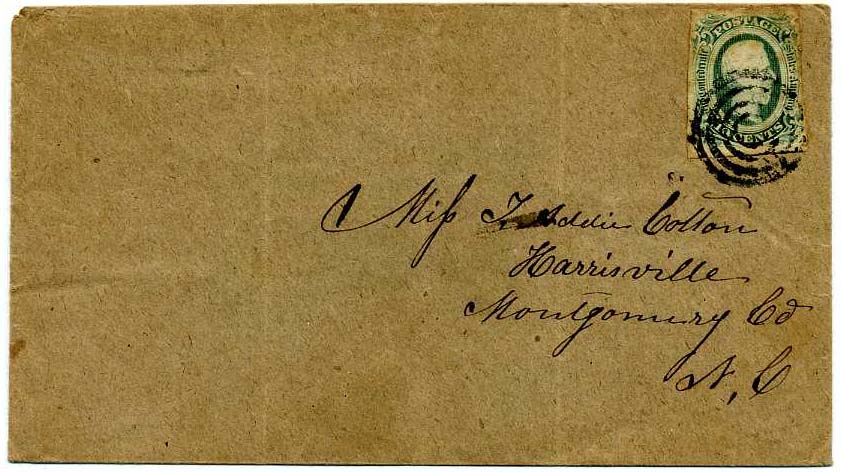 POSTAGE
Confederate States America
CENTS
Miss T. Addie Cotton
Harrisville
Montgomery Co
N, C